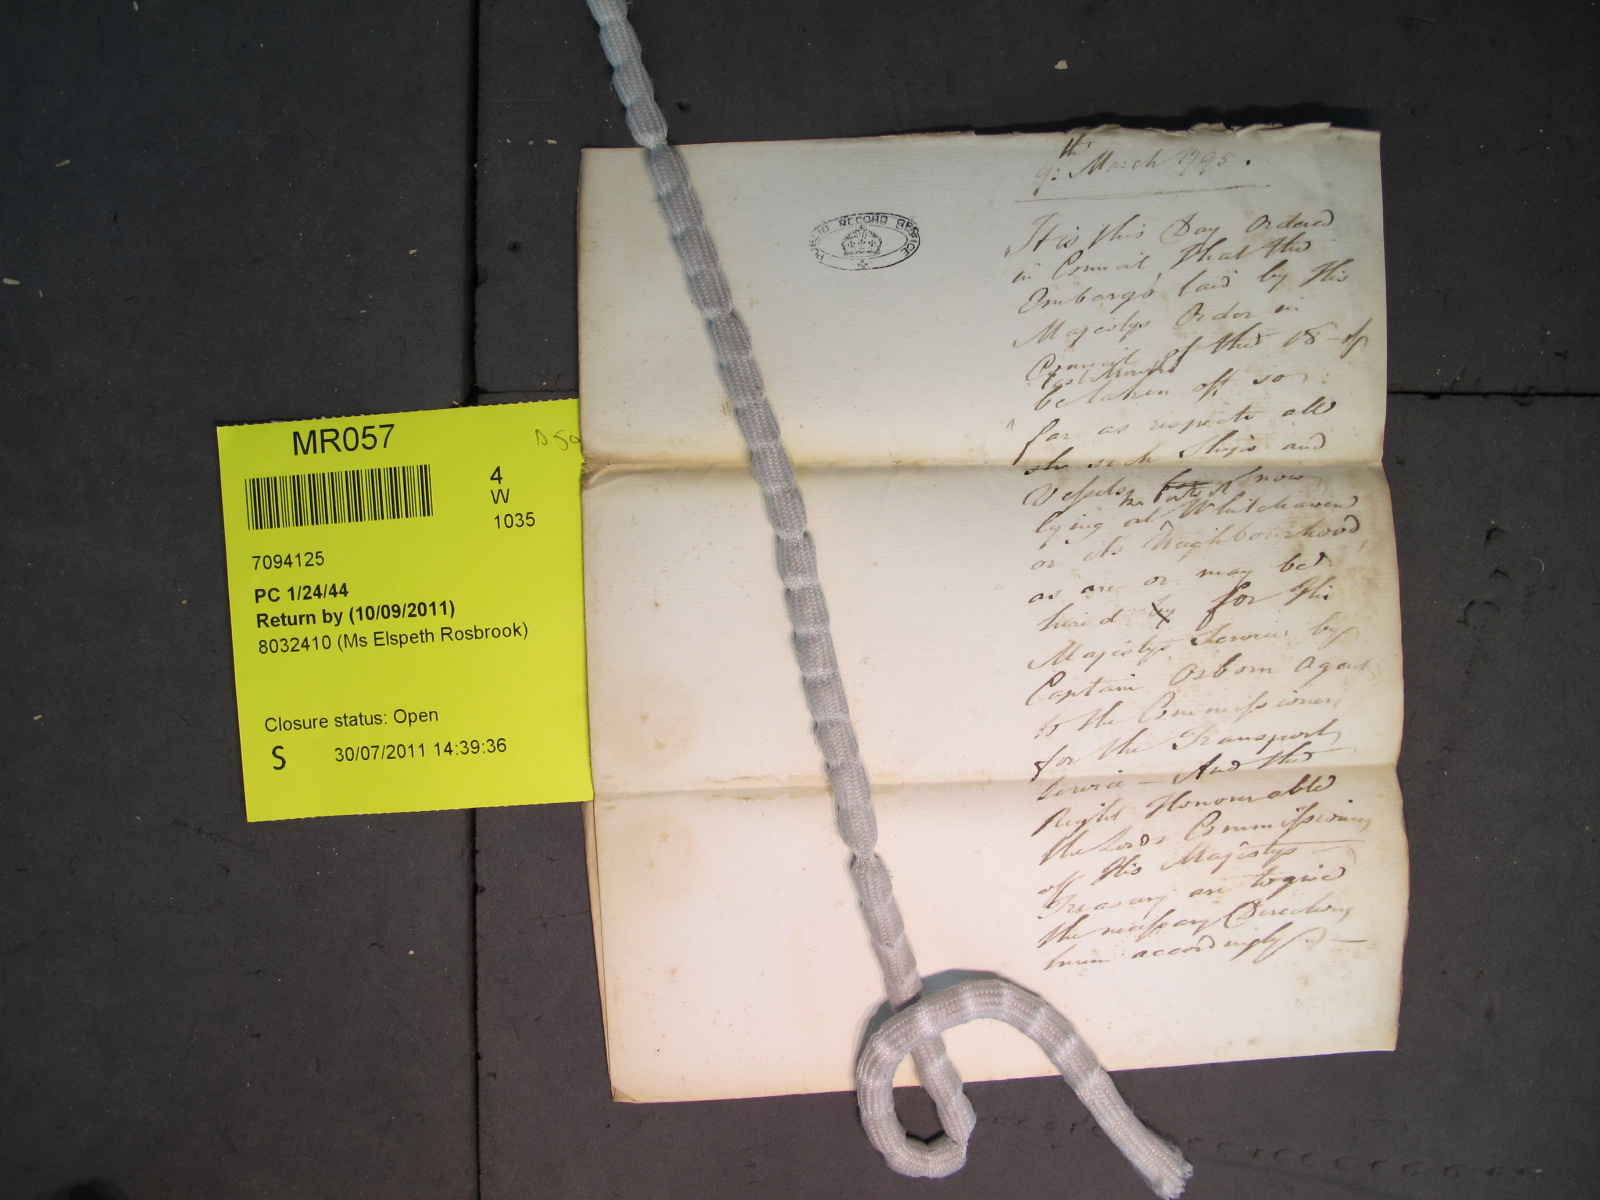 MR057
4
W
1035
7094125
PC 1/24/44
Return by (10/09/2011)
8032410 (Ms Elspeth Rosbrook)
Closure status: Open
S 30/07/2011 14:39:36
PUBLIC RECORD OFFICE
9th March 1795.
It is this Day Ordered
in Council, that the
Embargo laid by His
Majestys Order in
Council of the 18 of
last Month
be taken off so
far as respects all
such Ships and
Vessels now
lying at Whitehaven
or its Neighbourhood
as are or may be
hired for His
Majestys Service by
Captain Osborn Agent
to the Commissioners
for the Transport
Service — And the
Right Honourable
the Lords Commissioners
of His Majestys —
Treasury are to give
the necessary Directions
herein accordingly —